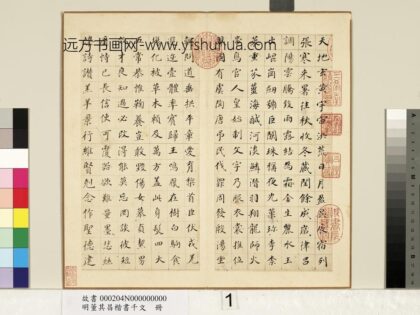 远方书画网-www.yfshuhua.com
天地玄黃宇宙洪荒日月盈昃辰宿列
張寒來暑往秋收冬藏閏餘成歲律呂
調陽雲騰致雨露結為霜金生麗水玉
出崑岡劍號巨闕珠稱夜光菓珍李柰
菜重芥薑海鹹河淡鱗潛羽翔龍師火
帝鳥官人皇始制文字乃服衣裳推位
讓國有虞陶唐弔民伐罪周發殷湯坐
朝問道垂拱平章愛育黎首臣伏戎羌
遐邇壹體率賓歸王鳴鳳在樹白駒食
場化被草木賴及萬方蓋此身髮四大
五常恭惟鞠養豈敢毀傷女慕貞絜男
效才良知過必改得能莫忘罔談彼短
靡恃己長信使可覆器欲難量墨悲絲
染詩讚羔羊景行維賢剋念作聖德建
故書 000204N000000000
明董其昌楷書千文 冊
1